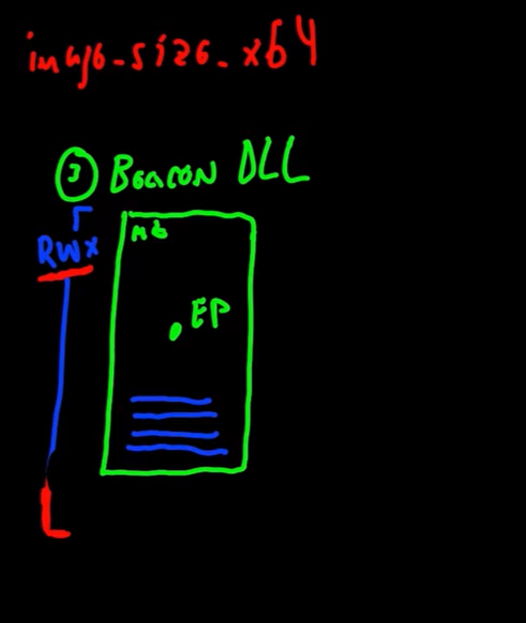 image_size_x64
③ Beacon DLL
RWX
EP